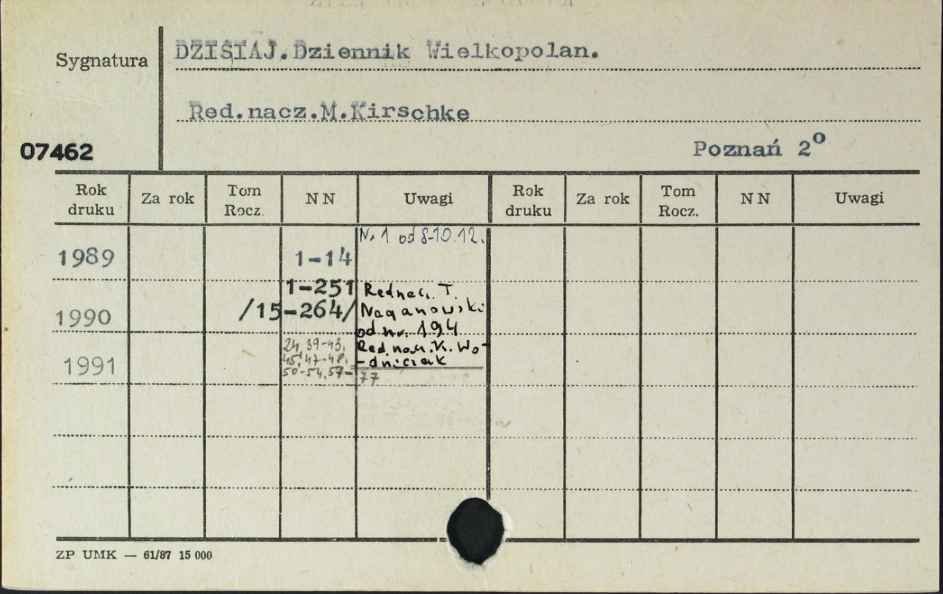 Sygnatura
DZISIAJ.Dziennik Wielkopolan.
Red.nacz.M.Kirschke
07462
Poznań 2o
Rok druku Za rok Tom Rocz. NN Uwagi Rok druku Za rok Tom Rocz. NN Uwagi
Nr 1 od 8-10.12.
1989 1-14
1-251 Rednacz. T.
1990 /15-264/ Naganowski
od nr. 194
24, 39-43, Red. nacz. K. Wo-
1991 45, 47-48, -dniczak
50-54, 57-77
ZP UMK — 61/87 15 000